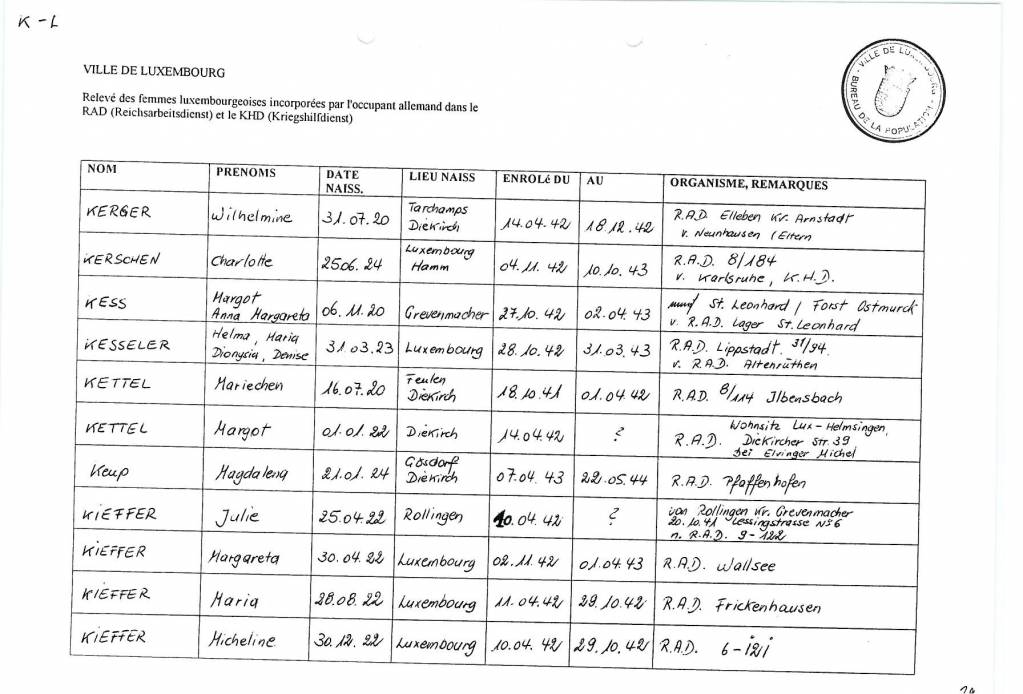 K - L
VILLE DE LUXEMBOURG
Relevé des femmes luxembourgeoises incorporées par l'occupant allemand dans le
RAD (Reichsarbeitsdienst) et le KHD (Kriegshilfdienst)
VILLE DE LUXEMBOURG
BUREAU DE LA POPULATION
NOM PRENOMS DATE NAISS. LIEU NAISS ENROLé DU AU ORGANISME, REMARQUES
KERGER Wilhelmine 31.07.20 Tarchamps Diekirch 14.04.42 18.12.42 R.A.D. Elleben Kr. Arnstadt
v. Neunhausen (Eltern
KERSCHEN Charlotte 25.06.24 Luxembourg Hamm 04.11.42 10.10.43 R.A.D. 8/184
v. Karlsruhe, K.H.D.
KESS Margot Anna Margareta 06.11.20 Grevenmacher 27.10.42 02.04.43 St. Leonhard / Forst Ostmurck
v. R.A.D. Lager St. Leonhard
KESSELER Helma, Maria Dionysia, Denise 31.03.23 Luxembourg 28.10.42 31.03.43 R.A.D. Lippstadt. 31/94.
v. R.A.D. Altenrüthen
KETTEL Mariechen 16.07.20 Feulen Diekirch 18.10.41 01.04.42 R.A.D. 8/114 Ilbensbach
KETTEL Margot 01.01.22 Diekirch 14.04.42 ? Wohnsitz Lux-Helmsingen,
R.A.D. Diekircher Str. 39
bei Elvinger Michel
Keup Magdalena 21.01.24 Gösdorf Diekirch 07.04.43 22.05.44 R.A.D. Pfaffenhofen
KIEFFER Julie 25.04.22 Rollingen 10.04.42 ? von Rollingen Kr. Grevenmacher
20.10.41 Lessingstrasse N° 6
n. R.A.D. 9-122
KIEFFER Margareta 30.04.22 Luxembourg 02.11.42 01.04.43 R.A.D. Wallsee
KIEFFER Maria 28.08.22 Luxembourg 11.04.42 29.10.42 R.A.D. Frickenhausen
KIEFFER Micheline 30.12.22 Luxembourg 10.04.42 29.10.42 R.A.D. 6-121